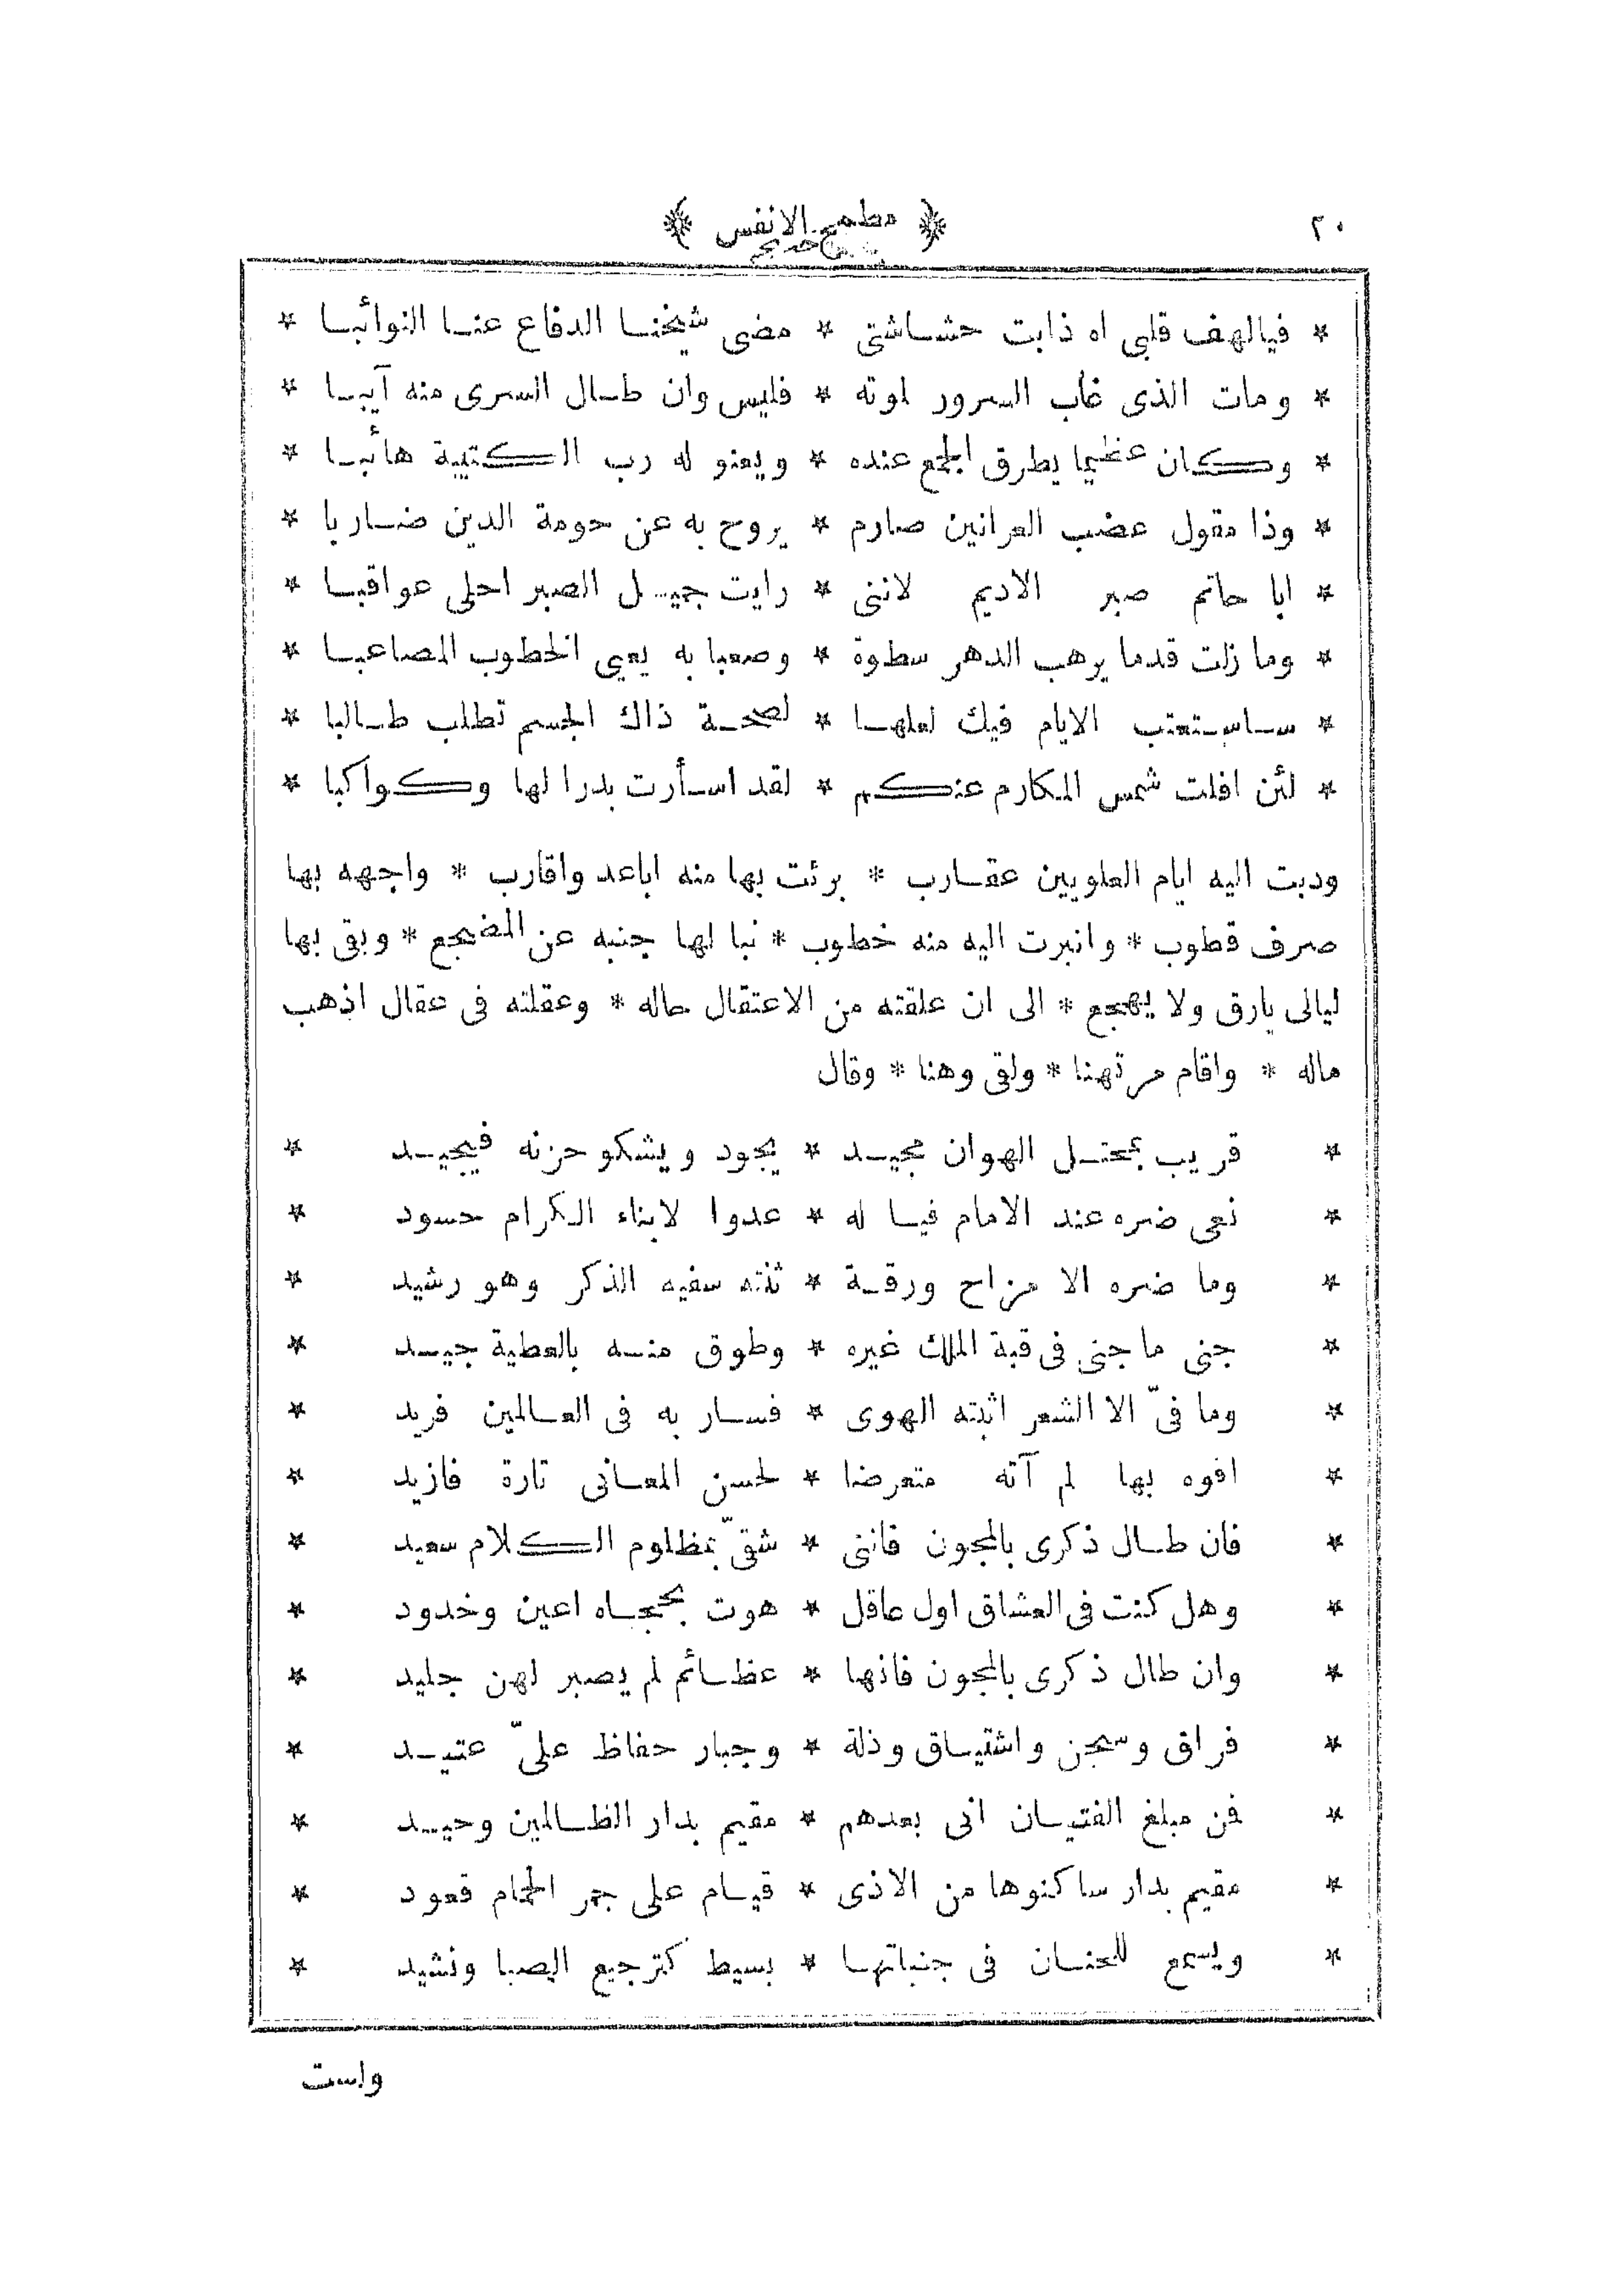 ٢٠ ﴿ مطمح الانفس ﴾
* فيالهف قلبى اه ذابت حشاشتى * مضى شيخنا الدفاع عنا النوائبا *
* ومات الذى غاب السرور لموته * فليس وان طال السرى منه آيبا *
* وكان عظيما يطرق الجمع عنده * ويعنو له رب الكتيبة هائبا *
* وذا مقول عضب العرانين صارم * يروح به عن حومة الدين ضاربا *
* ابا حاتم صبر الاديم لاننى * رايت جميل الصبر احلى عواقبا *
* وما زلت قدما يرهب الدهر سطوة * وصعبا به يعيى الخطوب المصاعبا *
* ساستعتب الايام فيك لعلها * لصحة ذاك الجسم تطلب طالبا *
* لئن افلت شمس المكارم عنكم * لقد اسأرت بدرا لها وكواكبا *
ودبت اليه ايام العلويين عقارب * برئت بها منه اباعد واقارب * واجهه بها
صرف قطوب * وانبرت اليه منه خطوب * نبا لها جنبه عن المضجع * وبقى بها
ليالى يارق ولا يهجع * الى ان علقته من الاعتقال حاله * وعقلته فى عقال اذهب
ماله * واقام مرتهنا * ولقى وهنا * وقال
* قريب بمحتل الهوان مجيد * يجود ويشكو حزنه فيجيد *
* نعى ضره عند الامام فيا له * عدوا لابناء الكرام حسود *
* وما ضره الا مزاح ورقة * ثنته سفيه الذكر وهو رشيد *
* جنى ما جنى فى قبة الملك غيره * وطوق منه بالعطية جيد *
* وما فىّ الا الشعر اثبته الهوى * فسار به فى العالمين فريد *
* افوه بها لم آته متعرضا * لحسن المعانى تارة فازيد *
* فان طال ذكرى بالمجون فاننى * شقىّ بمظلوم الكلام سعيد *
* وهل كنت فى العشاق اول عاقل * هوت بحجاه اعين وخدود *
* وان طال ذكرى بالمجون فانها * عظائم لم يصبر لهن جليد *
* فراق وسجن واشتياق وذلة * وجبار حفاظ علىّ عتيد *
* فمن مبلغ الفتيان انى بعدهم * مقيم بدار الظالمين وحيد *
* مقيم بدار ساكنوها من الاذى * قيام على جمر الحمام قعود *
* ويسمع للحنان فى جنباتها * بسيط كترجيع الصبا ونشيد *
واست